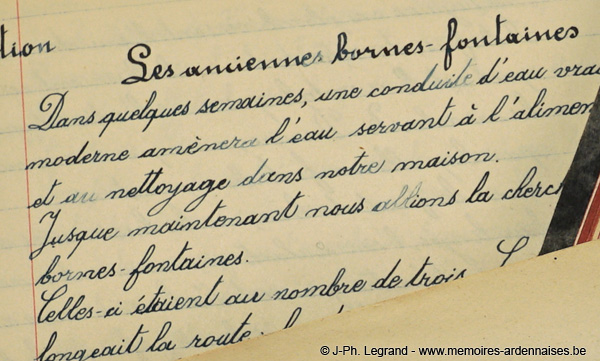 tion
Les anciennes bornes-fontaines
Dans quelques semaines, une conduite d'eau vrai
moderne amènera l'eau servant à l'alimen
et au nettoyage dans notre maison.
Jusque maintenant nous allions la cherch
bornes-fontaines.
Celles-ci étaient au nombre de trois.
longeait la route.
© J-Ph. Legrand - www.memoires-ardennaises.be